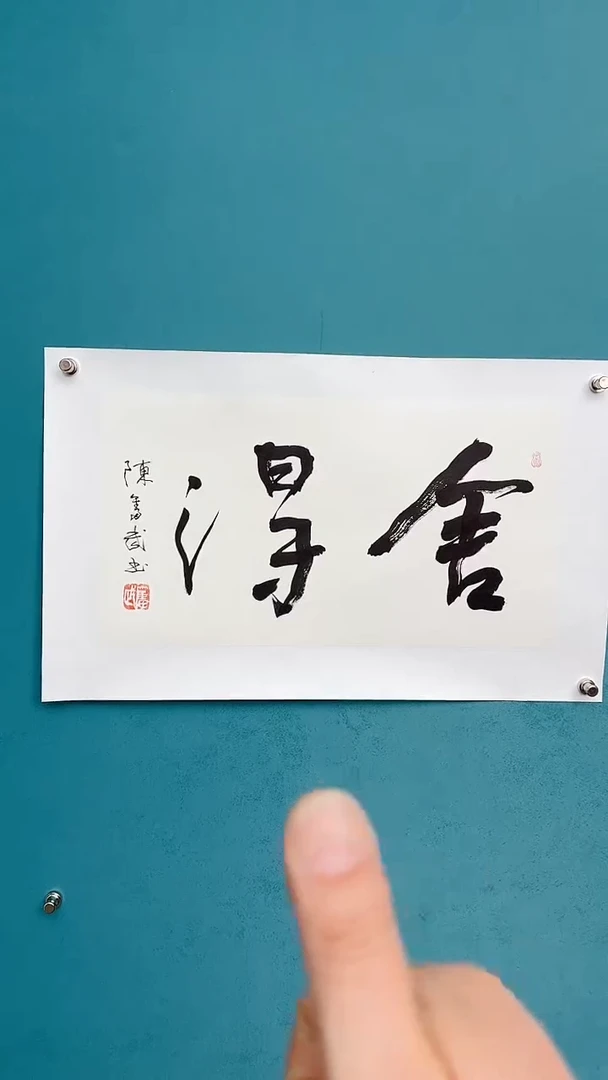 舍得
陳書武书